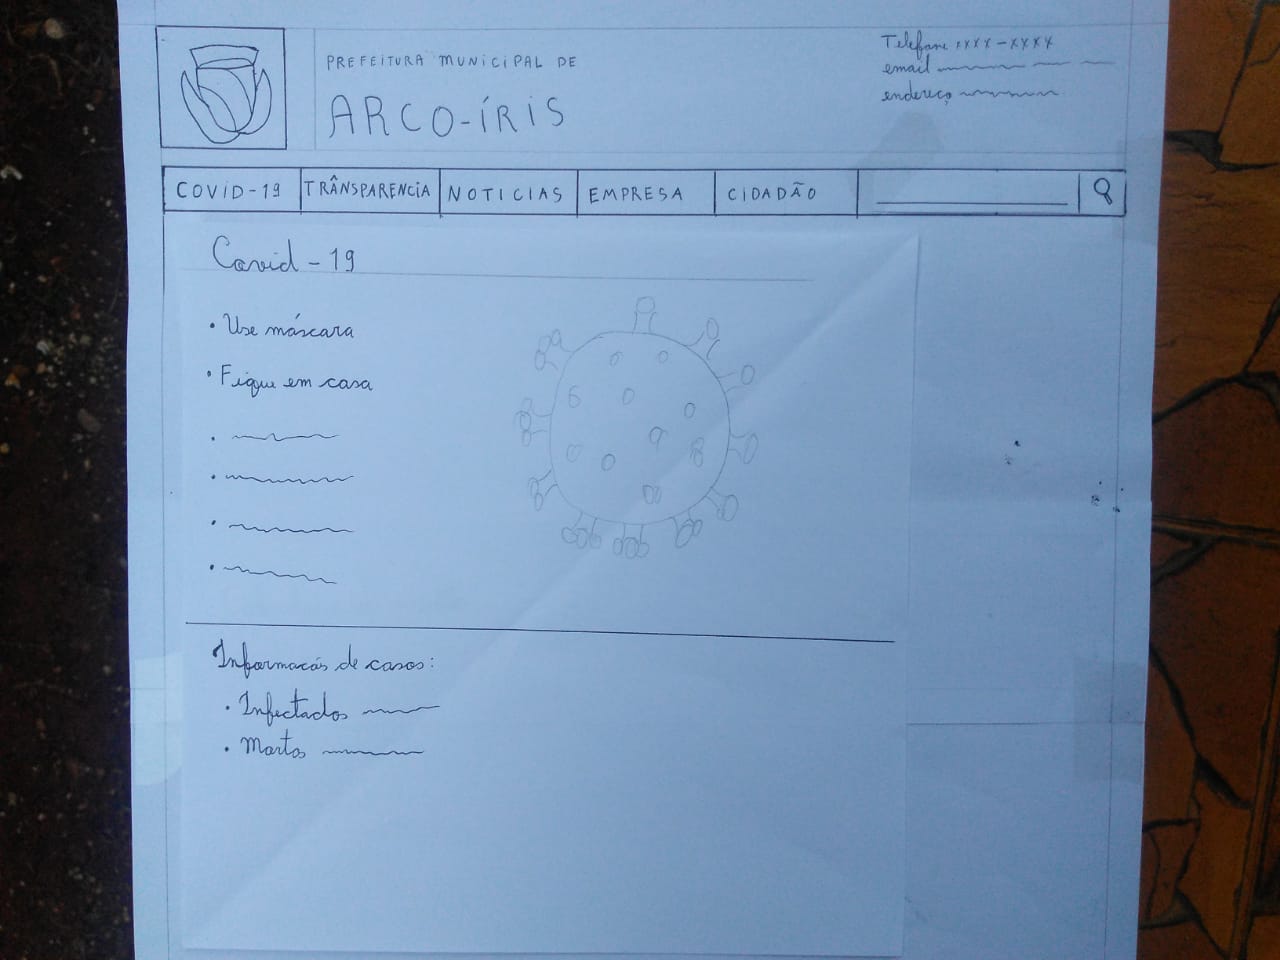 PREFEITURA MUNICIPAL DE
ARCO-ÍRIS
Telefone xxxx-xxxx
email
endereço
COVID-19 TRÂNSPARENCIA NOTICIAS EMPRESA CIDADÃO
Covid-19
• Use máscara
• Fique em casa
Informacões de casos:
• Infectados
• Mortos